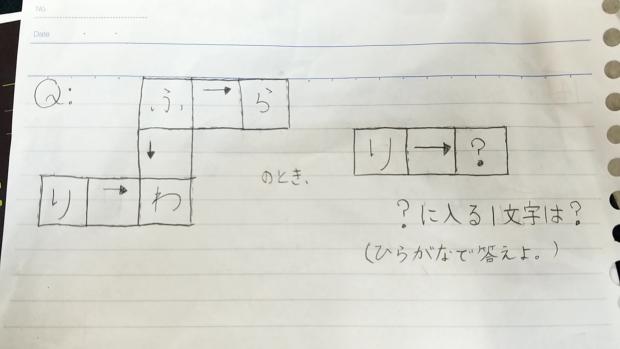 No.
Date
Q: ふ → ら
↓
り → わ
のとき、
り → ?
?に入る1文字は?
(ひらがなで答えよ。)